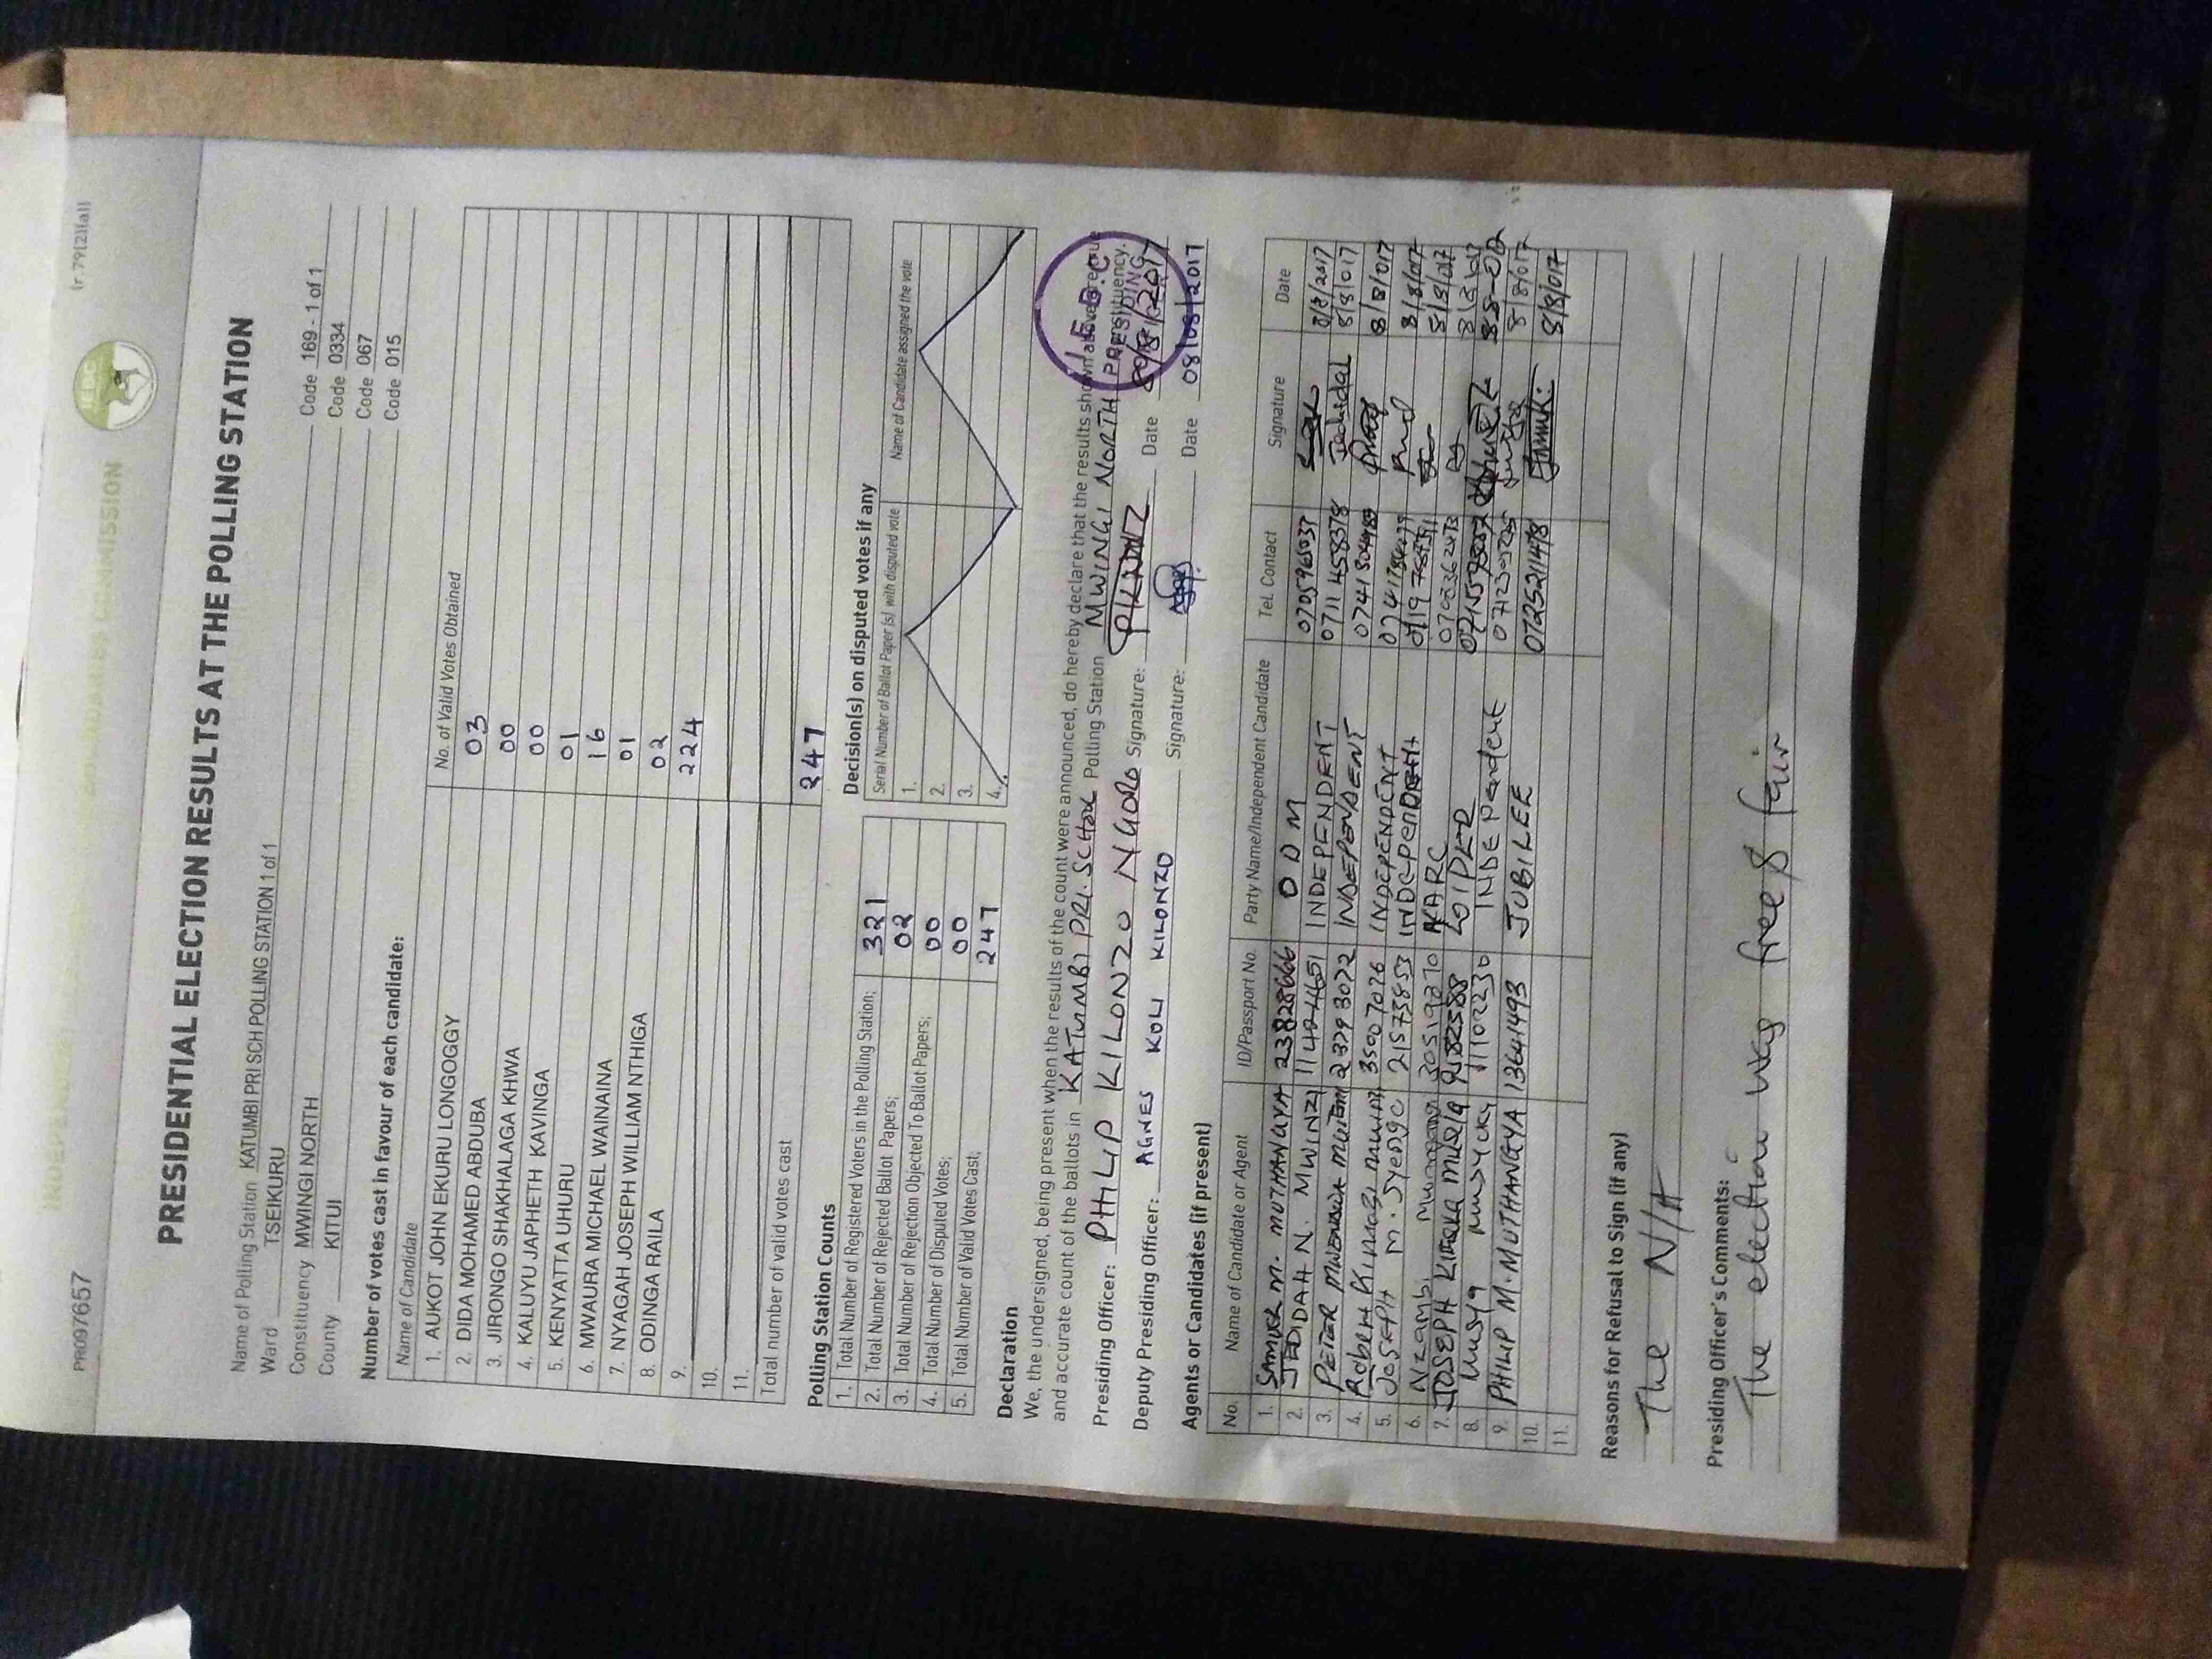 PR097657
(r.79(2)(a))
INDEPENDENT ELECTORAL AND BOUNDARIES COMMISSION
IEBC
PRESIDENTIAL ELECTION RESULTS AT THE POLLING STATION
Name of Polling Station KATUMBI PRI SCH POLLING STATION 1 of 1 Code 169 - 1 of 1
Ward TSEIKURU Code 0334
Constituency MWINGI NORTH Code 067
County KITUI Code 015
Number of votes cast in favour of each candidate:
Name of Candidate No. of Valid Votes Obtained
1. AUKOT JOHN EKURU LONGOGGY 03
2. DIDA MOHAMED ABDUBA 00
3. JIRONGO SHAKHALAGA KHWA 00
4. KALUYU JAPHETH KAVINGA 01
5. KENYATTA UHURU 16
6. MWAURA MICHAEL WAINAINA 01
7. NYAGAH JOSEPH WILLIAM NTHIGA 02
8. ODINGA RAILA 224
9.
10.
11.
Total number of valid votes cast 247
Polling Station Counts
1. Total Number of Registered Voters in the Polling Station; 321
2. Total Number of Rejected Ballot Papers; 02
3. Total Number of Rejection Objected To Ballot Papers; 00
4. Total Number of Disputed Votes; 00
5. Total Number of Valid Votes Cast; 247
Decision(s) on disputed votes if any
Serial Number of Ballot Paper (s) with disputed vote Name of Candidate assigned the vote
1.
2.
3.
4.
Declaration
We, the undersigned, being present when the results of the count were announced, do hereby declare that the results shown above are true
and accurate count of the ballots in KATUMBI PRI. SCHOOL Polling Station MWINGI NORTH Constituency.
I.E.B.C
PRESIDING
Presiding Officer: PHILIP KILONZO NGORO Signature: Date
Deputy Presiding Officer: AGNES KOLI KILONZO Signature: Date 08/08/2017
Agents or Candidates (if present)
No. Name of Candidate or Agent ID/Passport No. Party Name/Independent Candidate Tel. Contact Signature Date
1. SAMUEL M. MUTHANGYA 23828666 ODM 0705965037 8/8/2017
2. JEDIDAH N. MWINZI INDEPENDENT 0711458378 Jedidah 8/8/017
3. PETER MUTEMI 23793072 INDEPENDENT 8/8/017
4. Robert 35007026 INDEPENDENT 8/8/017
5. JOSEPH M. Syengo 21573853 INDEPENDENT 8/8/017
6. Nzambi 30519270 NARC 8/8/017
7. JOSEPH MUSYA
8. Musya Musyoky 11102230 INDEPendent 8/8/017
9. PHILIP M. MUTHANGYA 13641493 JUBILEE 0725211478 8/8/017
10.
11.
Reasons for Refusal to Sign (if any)
The N/A
Presiding Officer's Comments:
The election was free & fair